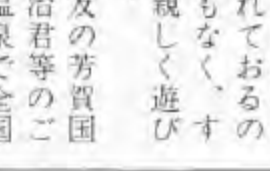 れておるの
もなく、す
親しく遊び
友の芳賀国
治君等のご
温泉で全国